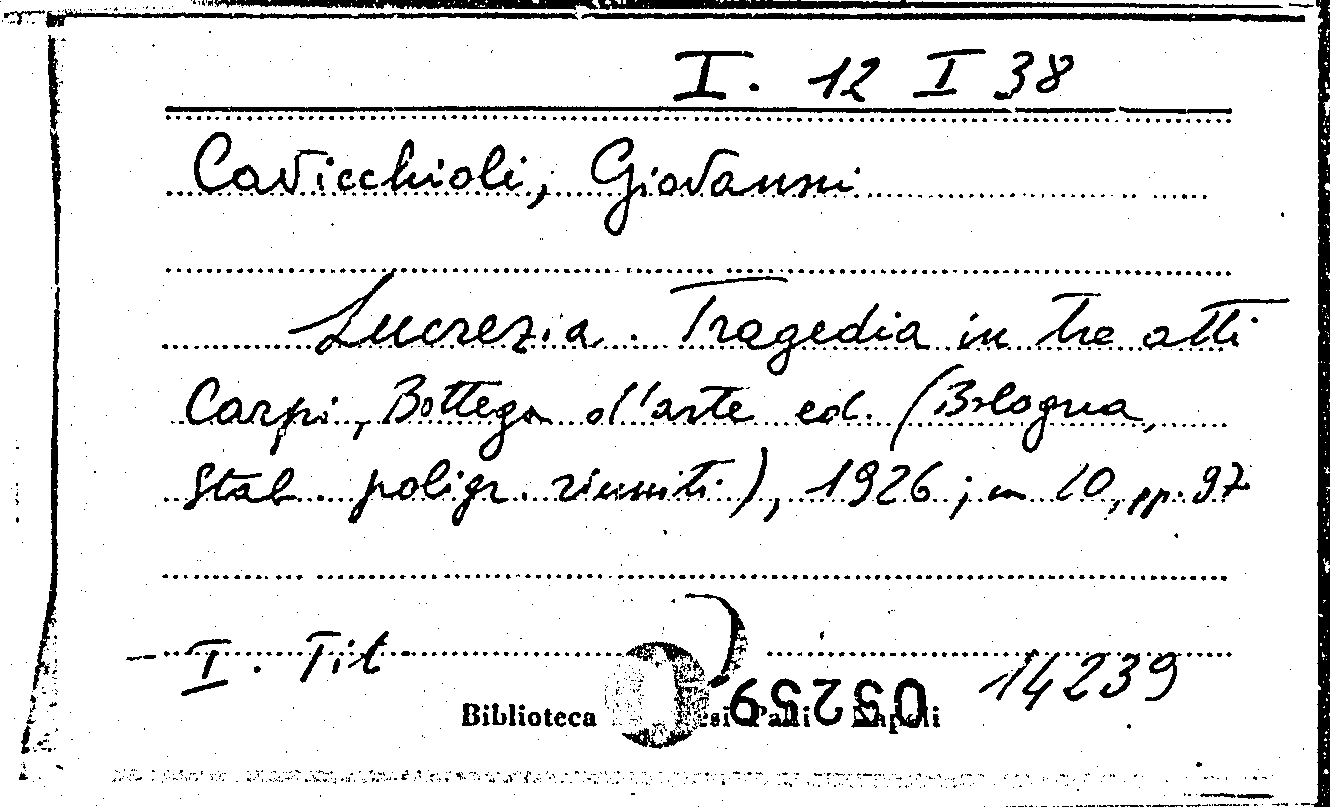 I. 12 I 38
Cavicchioli, Giovanni
Lucrezia. Tragedia in tre atti
Carpi, Bottega d'arte ed. (Bologna,
Stab. poligr. riuniti), 1926; in 10, pp. 97
I. Tit
14239
Biblioteca Napoli